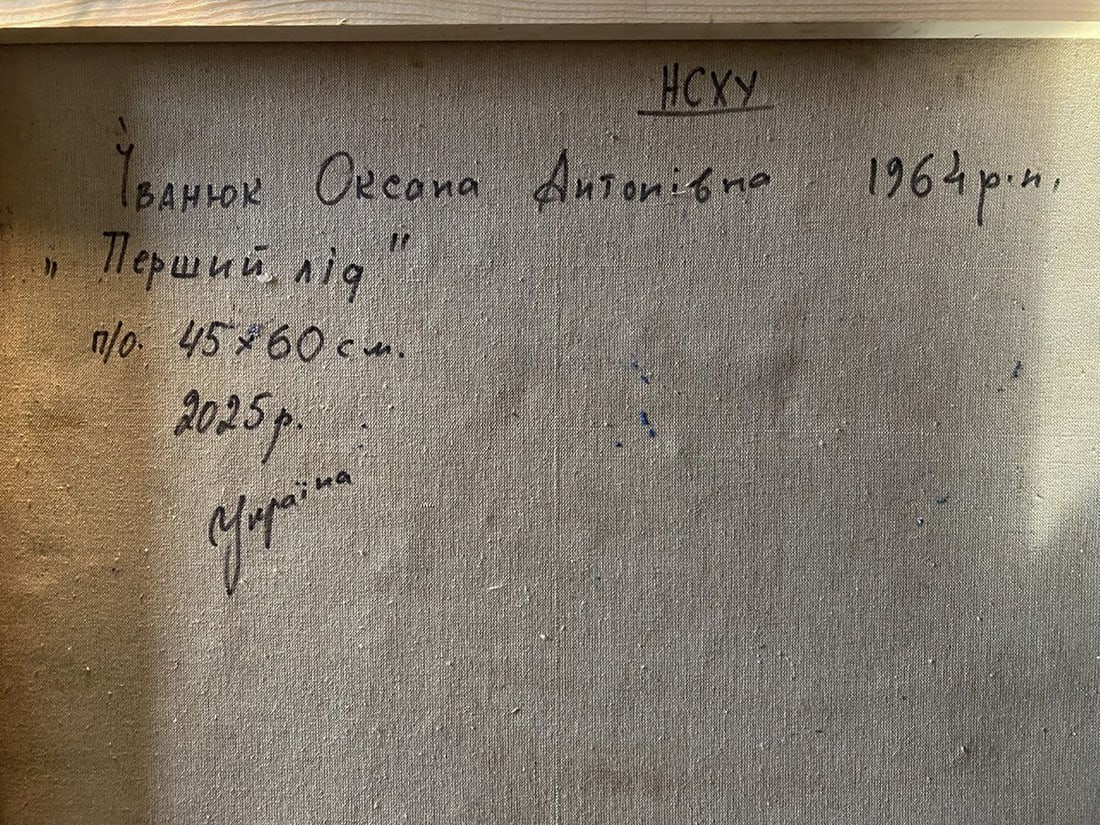 НСХУ
Іванюк Оксана Антонівна 1964 р.н.
„Перший лід"
п/о. 45×60 см.
2025 р.
Україна